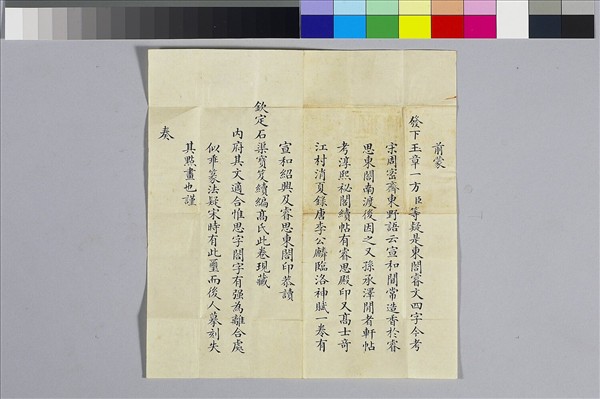 前蒙
發下玉章一方臣等疑是東閣睿文四字今考
宋周密齊東野語云宣和間常造香於睿
思東閣南渡後因之又孫承澤閒者軒帖
考淳熙秘閣續帖有睿思殿印又高士奇
江村消夏錄唐李公麟臨洛神賦一卷有
宣和紹興及睿思東閣印恭讀
欽定石渠寶笈續編高氏此卷現藏
內府其文適合惟思字閣字有强為離合處
似乖篆法疑宋時有此璽而後人摹刻失
其點畫也謹
奏